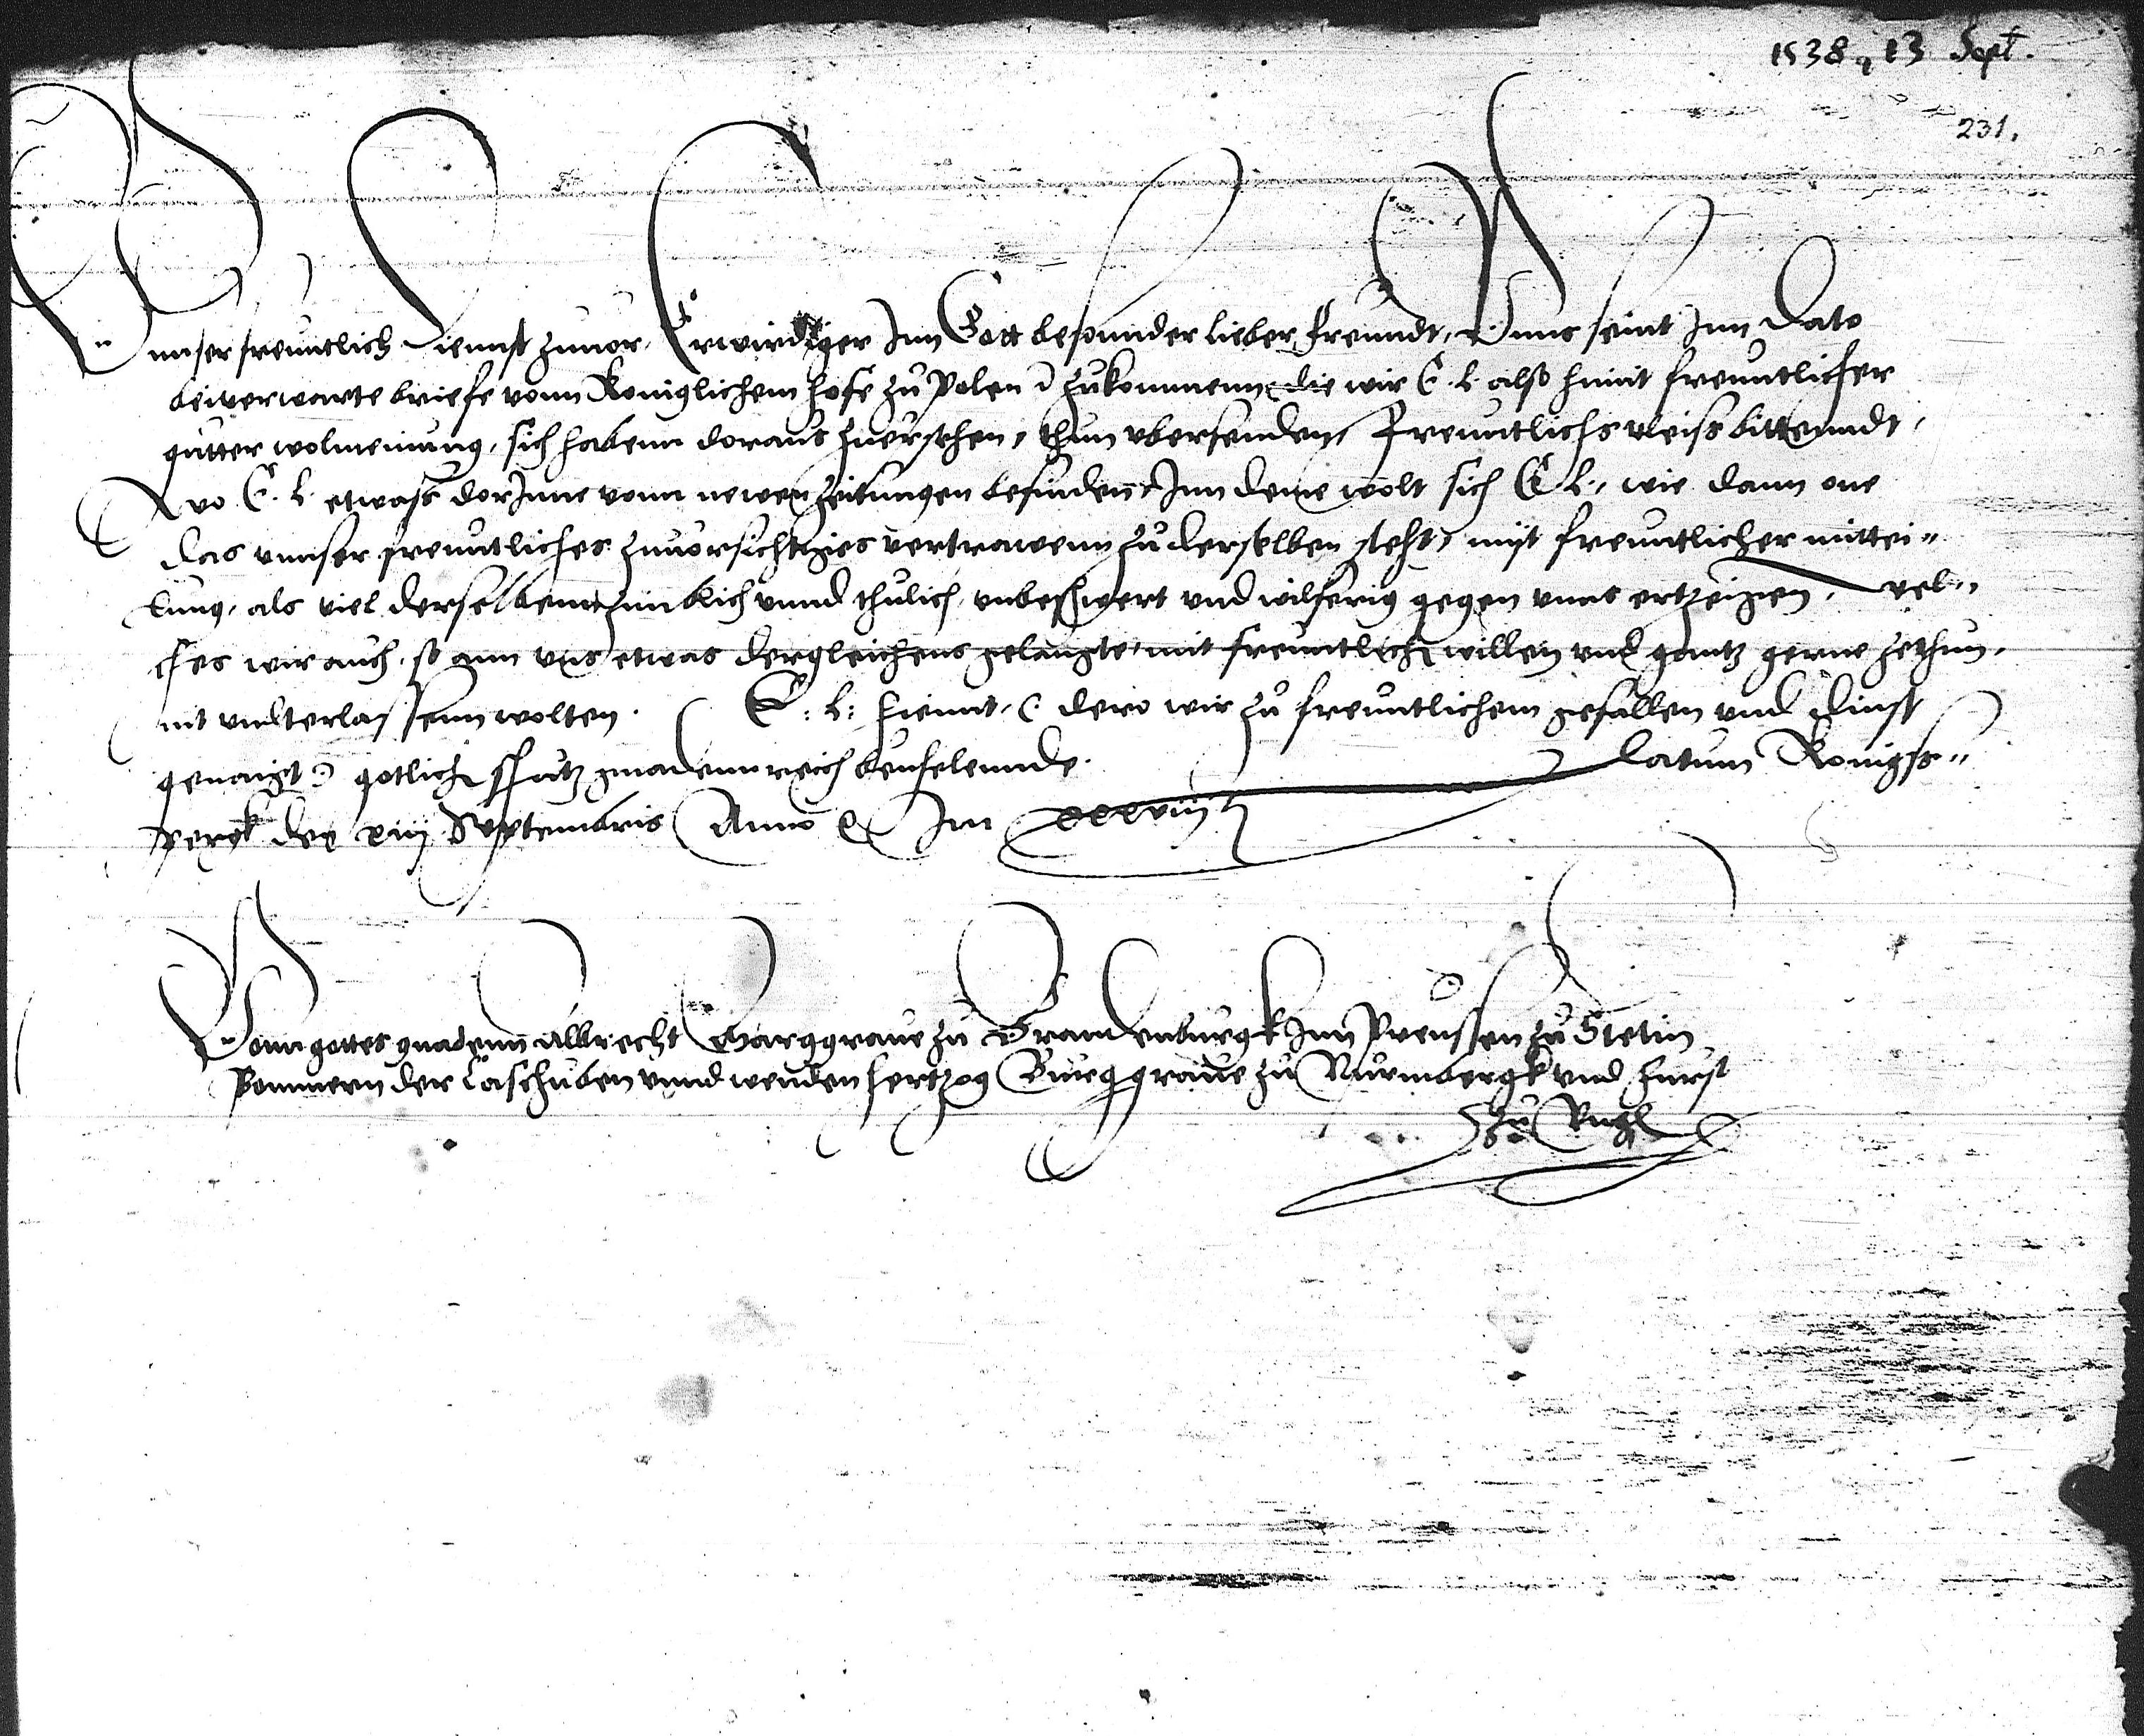 1538, 13 Sept.
231.
Unnser freuntlich diennst zuuor. Erwirdiger Inn Gott besonnder lieber Freundt, Vnns seint Inn Dato
beiverwarte briefe vonn Koniglichem hofe zu Polen zukommenn, die wir E. L. also hirmit freuntlicher
gutter wolmeinung, sich habenn doraus zuersehen, thun vbersenden, Freuntlichs vleiss bittenndt,
wo E. L. etwass dorInne vonn newen Zeitungen befinden, Inn deme wolt sich E L., wie dann one
das vnnser freuntliches zuuorsichtiges vertrawenn zu derselben steht, mit freuntlicher mittei„
lung, als viel derselbenn zimblich vnnd thulich, vnbeschwert vnd wilferig gegen vnns ertzeigen, wel„
ches wir auch, so ann vns etwas dergleichens gelangte, mit freuntlichem willen vnd gantz gerne zethun,
nit vnterlassenn wolten. E: L: hiemit, dero wir zu freuntlichem gefallen vnd dinst
genaigt gotlichem schutz gnadennreich beuhelennde. Datum Konigss„
pergk den xiij Septembris Anno &c Im xxxviij
Vonn gottes gnadenn Albrecht Marggraue zu Brandenburgk Inn Preussen zu Stetin
Pommern der Caschuben vnnd wenden hertzog Burggraue zu Nurmbergk vnd Furst
Zu Rugen